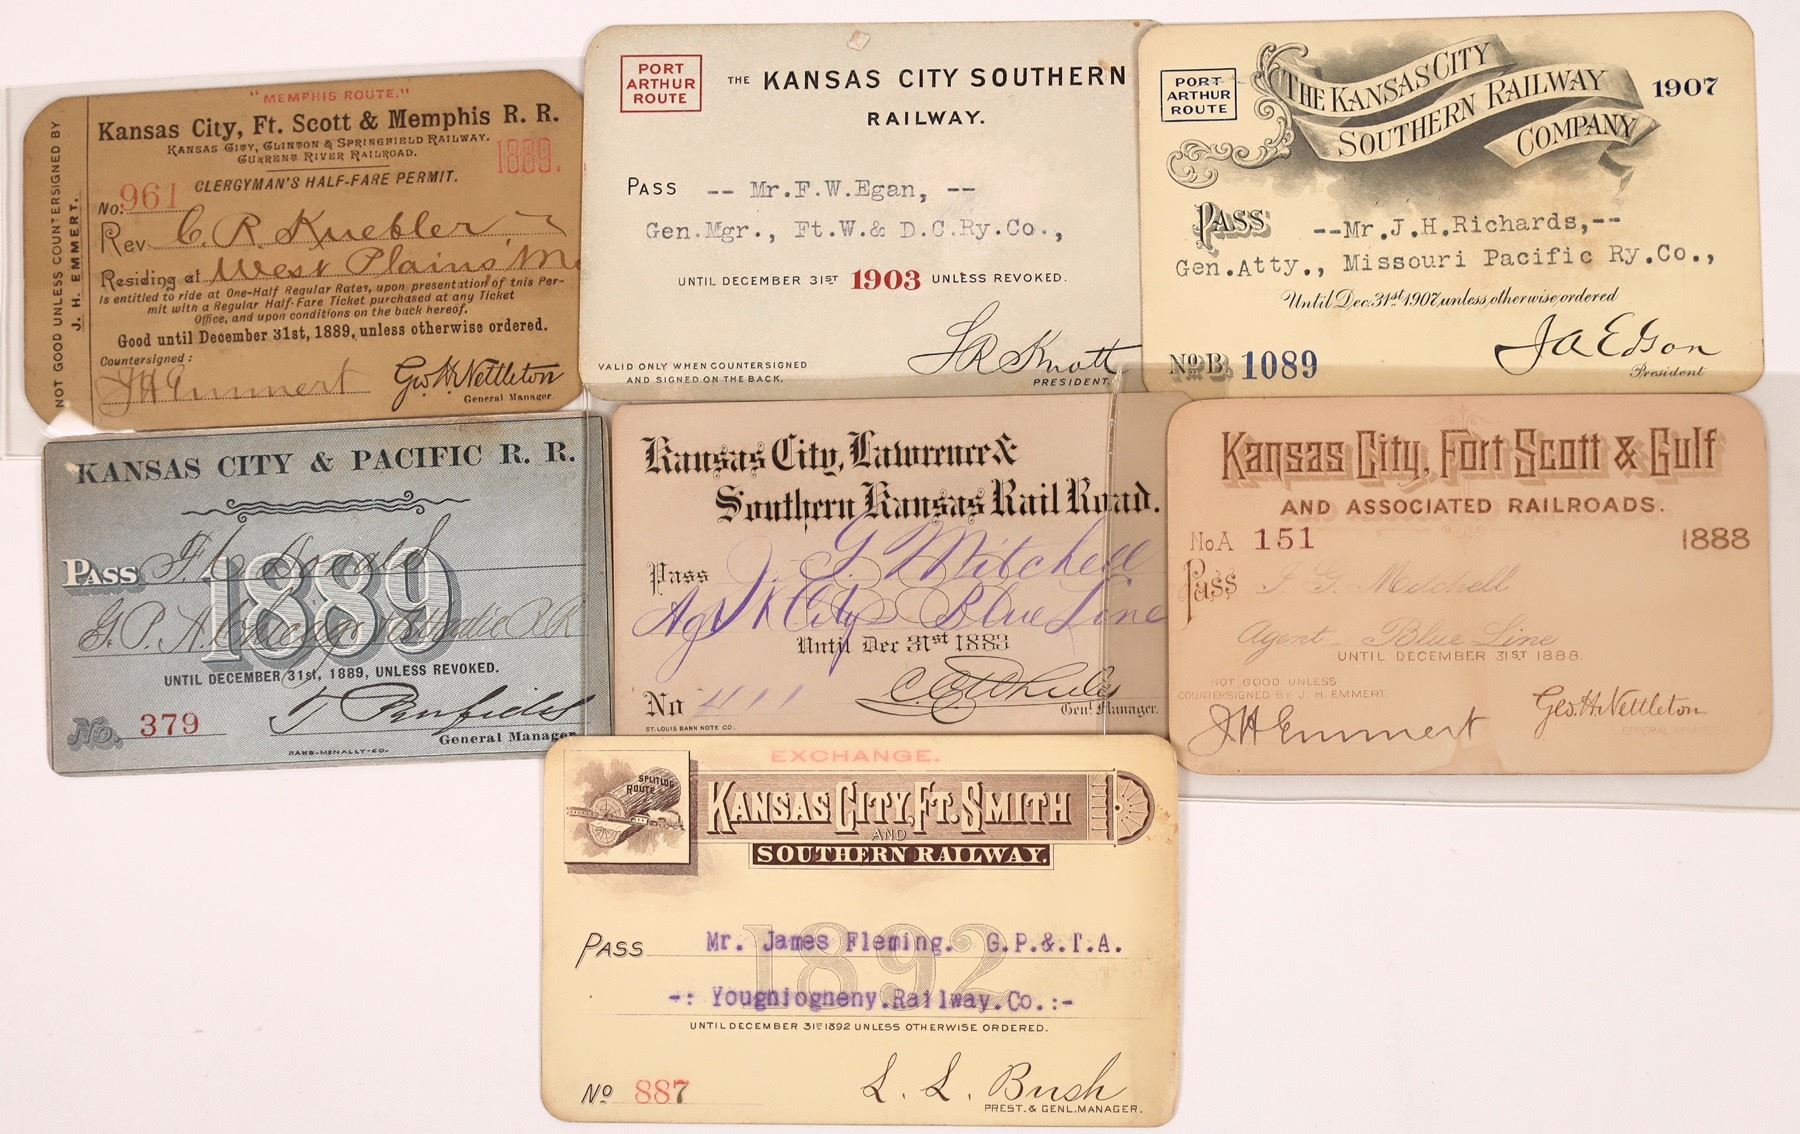 NOT GOOD UNLESS COUNTERSIGNED BY
J. H. EMMERT.
"MEMPHIS ROUTE."
Kansas City, Ft. Scott & Memphis R. R.
KANSAS CITY, CLINTON & SPRINGFIELD RAILWAY.
CURRENT RIVER RAILROAD.
1889.
CLERGYMAN'S HALF-FARE PERMIT.
No. 961
Rev. C. R. Kuebler
Residing at West Plains, Mo
Is entitled to ride at One-Half Regular Rates, upon presentation of this Per-
mit with a Regular Half-Fare Ticket purchased at any Ticket
Office, and upon conditions on the back hereof.
Good until December 31st, 1889, unless otherwise ordered.
Countersigned:
J H Emmert
Geo. H. Nettleton
General Manager
PORT
ARTHUR
ROUTE
THE KANSAS CITY SOUTHERN
RAILWAY.
PASS -- Mr. F. W. Egan, --
Gen. Mgr., Ft. W. & D. C. Ry. Co.,
UNTIL DECEMBER 31ST 1903 UNLESS REVOKED.
VALID ONLY WHEN COUNTERSIGNED
AND SIGNED ON THE BACK.
S R Knott
PRESIDENT.
PORT
ARTHUR
ROUTE
THE KANSAS CITY
SOUTHERN RAILWAY
COMPANY
1907
PASS --Mr. J. H. Richards,--
Gen. Atty., Missouri Pacific Ry. Co.,
Until Dec. 31st 1907, unless otherwise ordered
No. B. 1089
J A Edson
President
KANSAS CITY & PACIFIC R. R.
1889
PASS
UNTIL DECEMBER 31st, 1889, UNLESS REVOKED.
No. 379
T Penfield
General Manager
RAND-MCNALLY-CO.
Kansas City, Lawrence &
Southern Kansas Rail Road.
Pass J. G. Mitchell
Agt K City Blue Line
Until Dec 31st 1883
No 411
C C Wheeler
Genl. Manager.
ST. LOUIS BANK NOTE CO.
Kansas City, Fort Scott & Gulf
AND ASSOCIATED RAILROADS.
No A 151
1888
Pass J. G. Mitchell
Agent Blue Line
UNTIL DECEMBER 31ST 1888.
NOT GOOD UNLESS
COUNTERSIGNED BY J. H. EMMERT.
J H Emmert
Geo. H. Nettleton
GENERAL MANAGER
EXCHANGE.
SPLITLOG
ROUTE
KANSAS CITY, FT. SMITH
AND
SOUTHERN RAILWAY.
1892
PASS Mr. James Fleming. G.P.&.T.A.
-: Youghiogheny.Railway.Co.:-
UNTIL DECEMBER 31ST 1892 UNLESS OTHERWISE ORDERED.
No 887
L. L. Bush
PREST. & GENL. MANAGER.